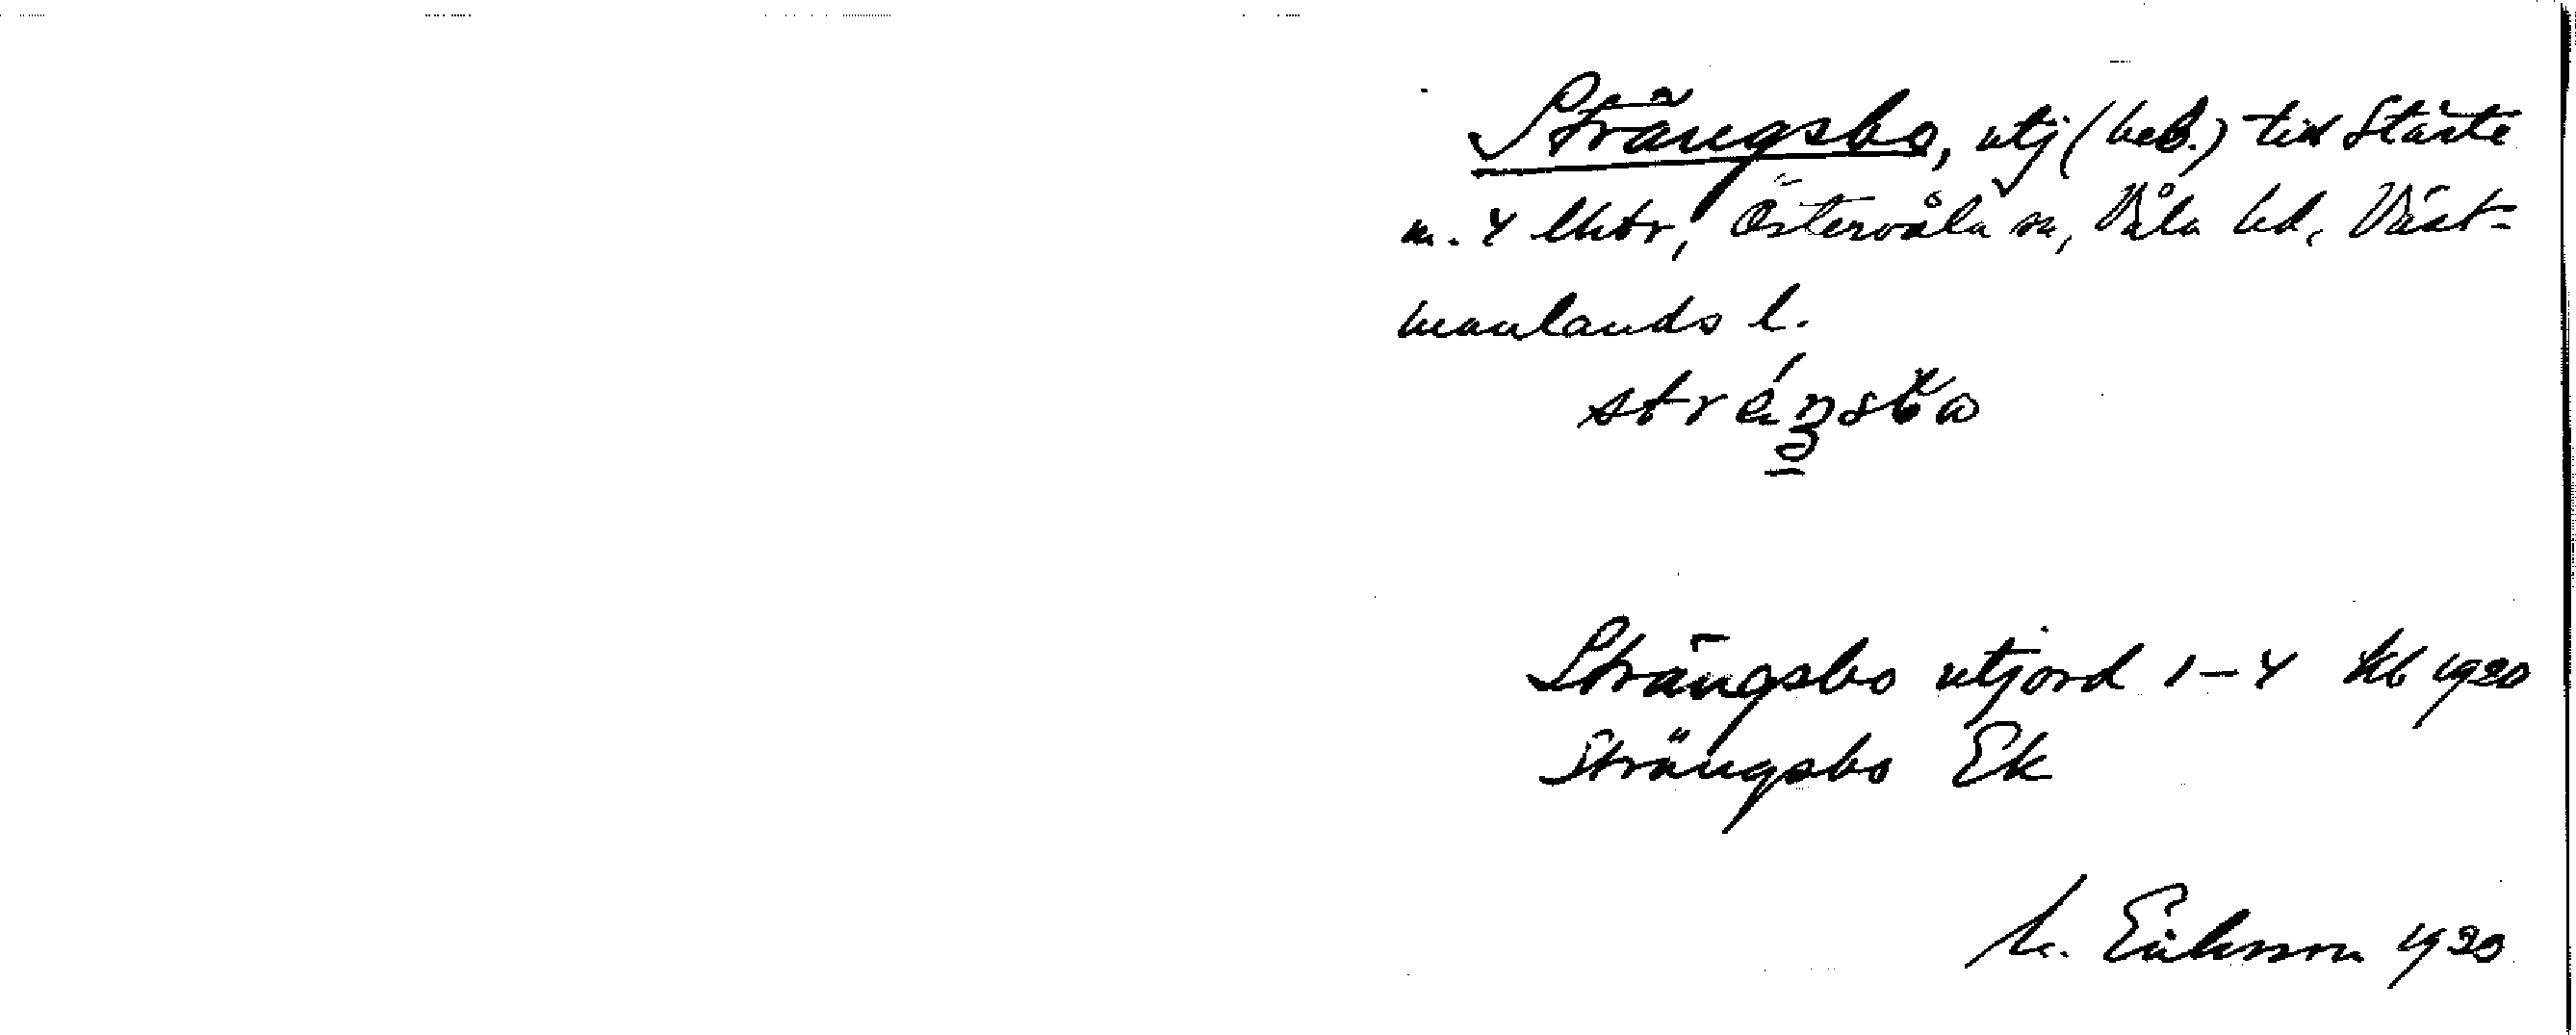 Strängsbo, utj (beb.) till Stärte
m. 4 Östervåla sn, Våla hd, Väst-
manlands l.
Strängsbo utjord 1–4 Jb 1920
Strängsbo Ek
M. Eriksson 1920